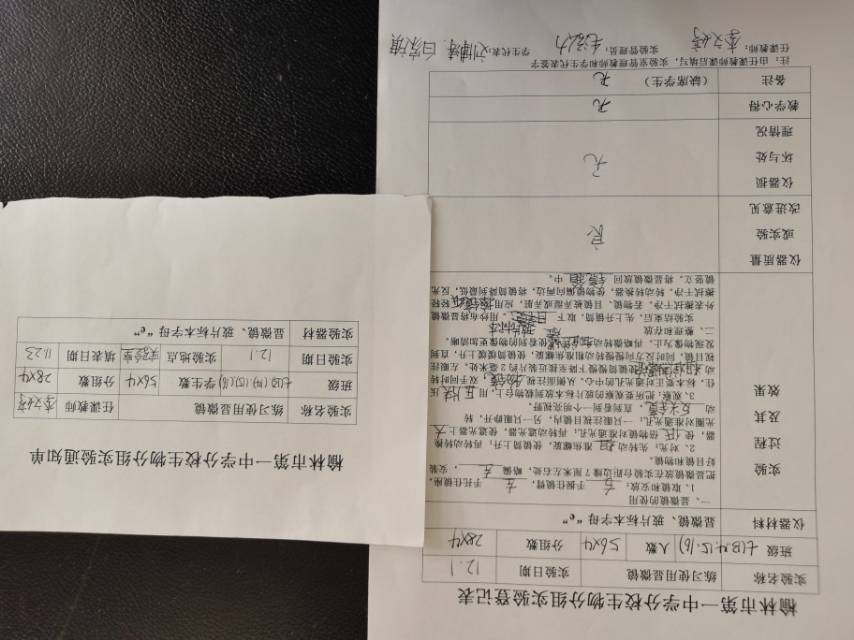 榆林市第一中学分校生物分组实验通知单
实验名称 练习使用显微镜 任课教师 李文婷
班级 学生数 56x4 分组数 28x4
实验日期 12.1 实验地点 实验室 填表日期 11.23
实验器材 显微镜、玻片标本字母“e”
榆林市第一中学分校生物分组实验登记表
实验名称 练习使用显微镜 实验日期 12.1
班级 人数 56x4 分组数 28x4
仪器材料 显微镜、玻片标本字母“e”
实验过程及其效果
一、显微镜的使用
1、取镜和安放: 右 手握住镜臂, 左 手托住镜座,
把显微镜放在实验台距边缘7厘米左右处,略偏 左 ,安装
好目镜和物镜。
2、对光:先转动 粗 准焦螺旋,使镜筒上升;再转动转换
器,使 低倍 物镜对准通光孔;再转动遮光器,使遮光器上 大
光圈对准通光孔;一只眼注视目镜内,另一只眼睁开,转
动 反光镜 ,直到看到一个明亮视野。
3、观察:把所要观察的玻片标本放到载物台上,用 压片夹 压
住,标本要正对通光孔的中心。从侧面注视 物镜 ,双手同时转
动 使镜筒慢慢下降至接近玻片约2毫米处,左眼注
视目镜,同时反方向慢慢转动粗准焦螺旋,使镜筒缓缓上升,直到
发现物像为止,再略微转动 使看到的物像更加清晰。
二、整理和存放
实验结束后,先上升镜筒,取下 ,用纱布将显微镜
外表擦拭干净,若物镜、目镜被弄湿或弄脏,应用 擦镜纸 轻轻
擦拭干净。转动转换器,使物镜偏向两边,将镜筒降到最低,反光
镜竖立,将显微镜放回 镜箱 中。
仪器质量或实验改进意见 良
仪器损坏与处理情况 无
教学心得 无
备注 (缺席学生) 无
注:由任课教师课后填写,实验室管理教师和学生代表签字
任课教师: 李文婷 实验管理员: 学生代表: 刘博涛